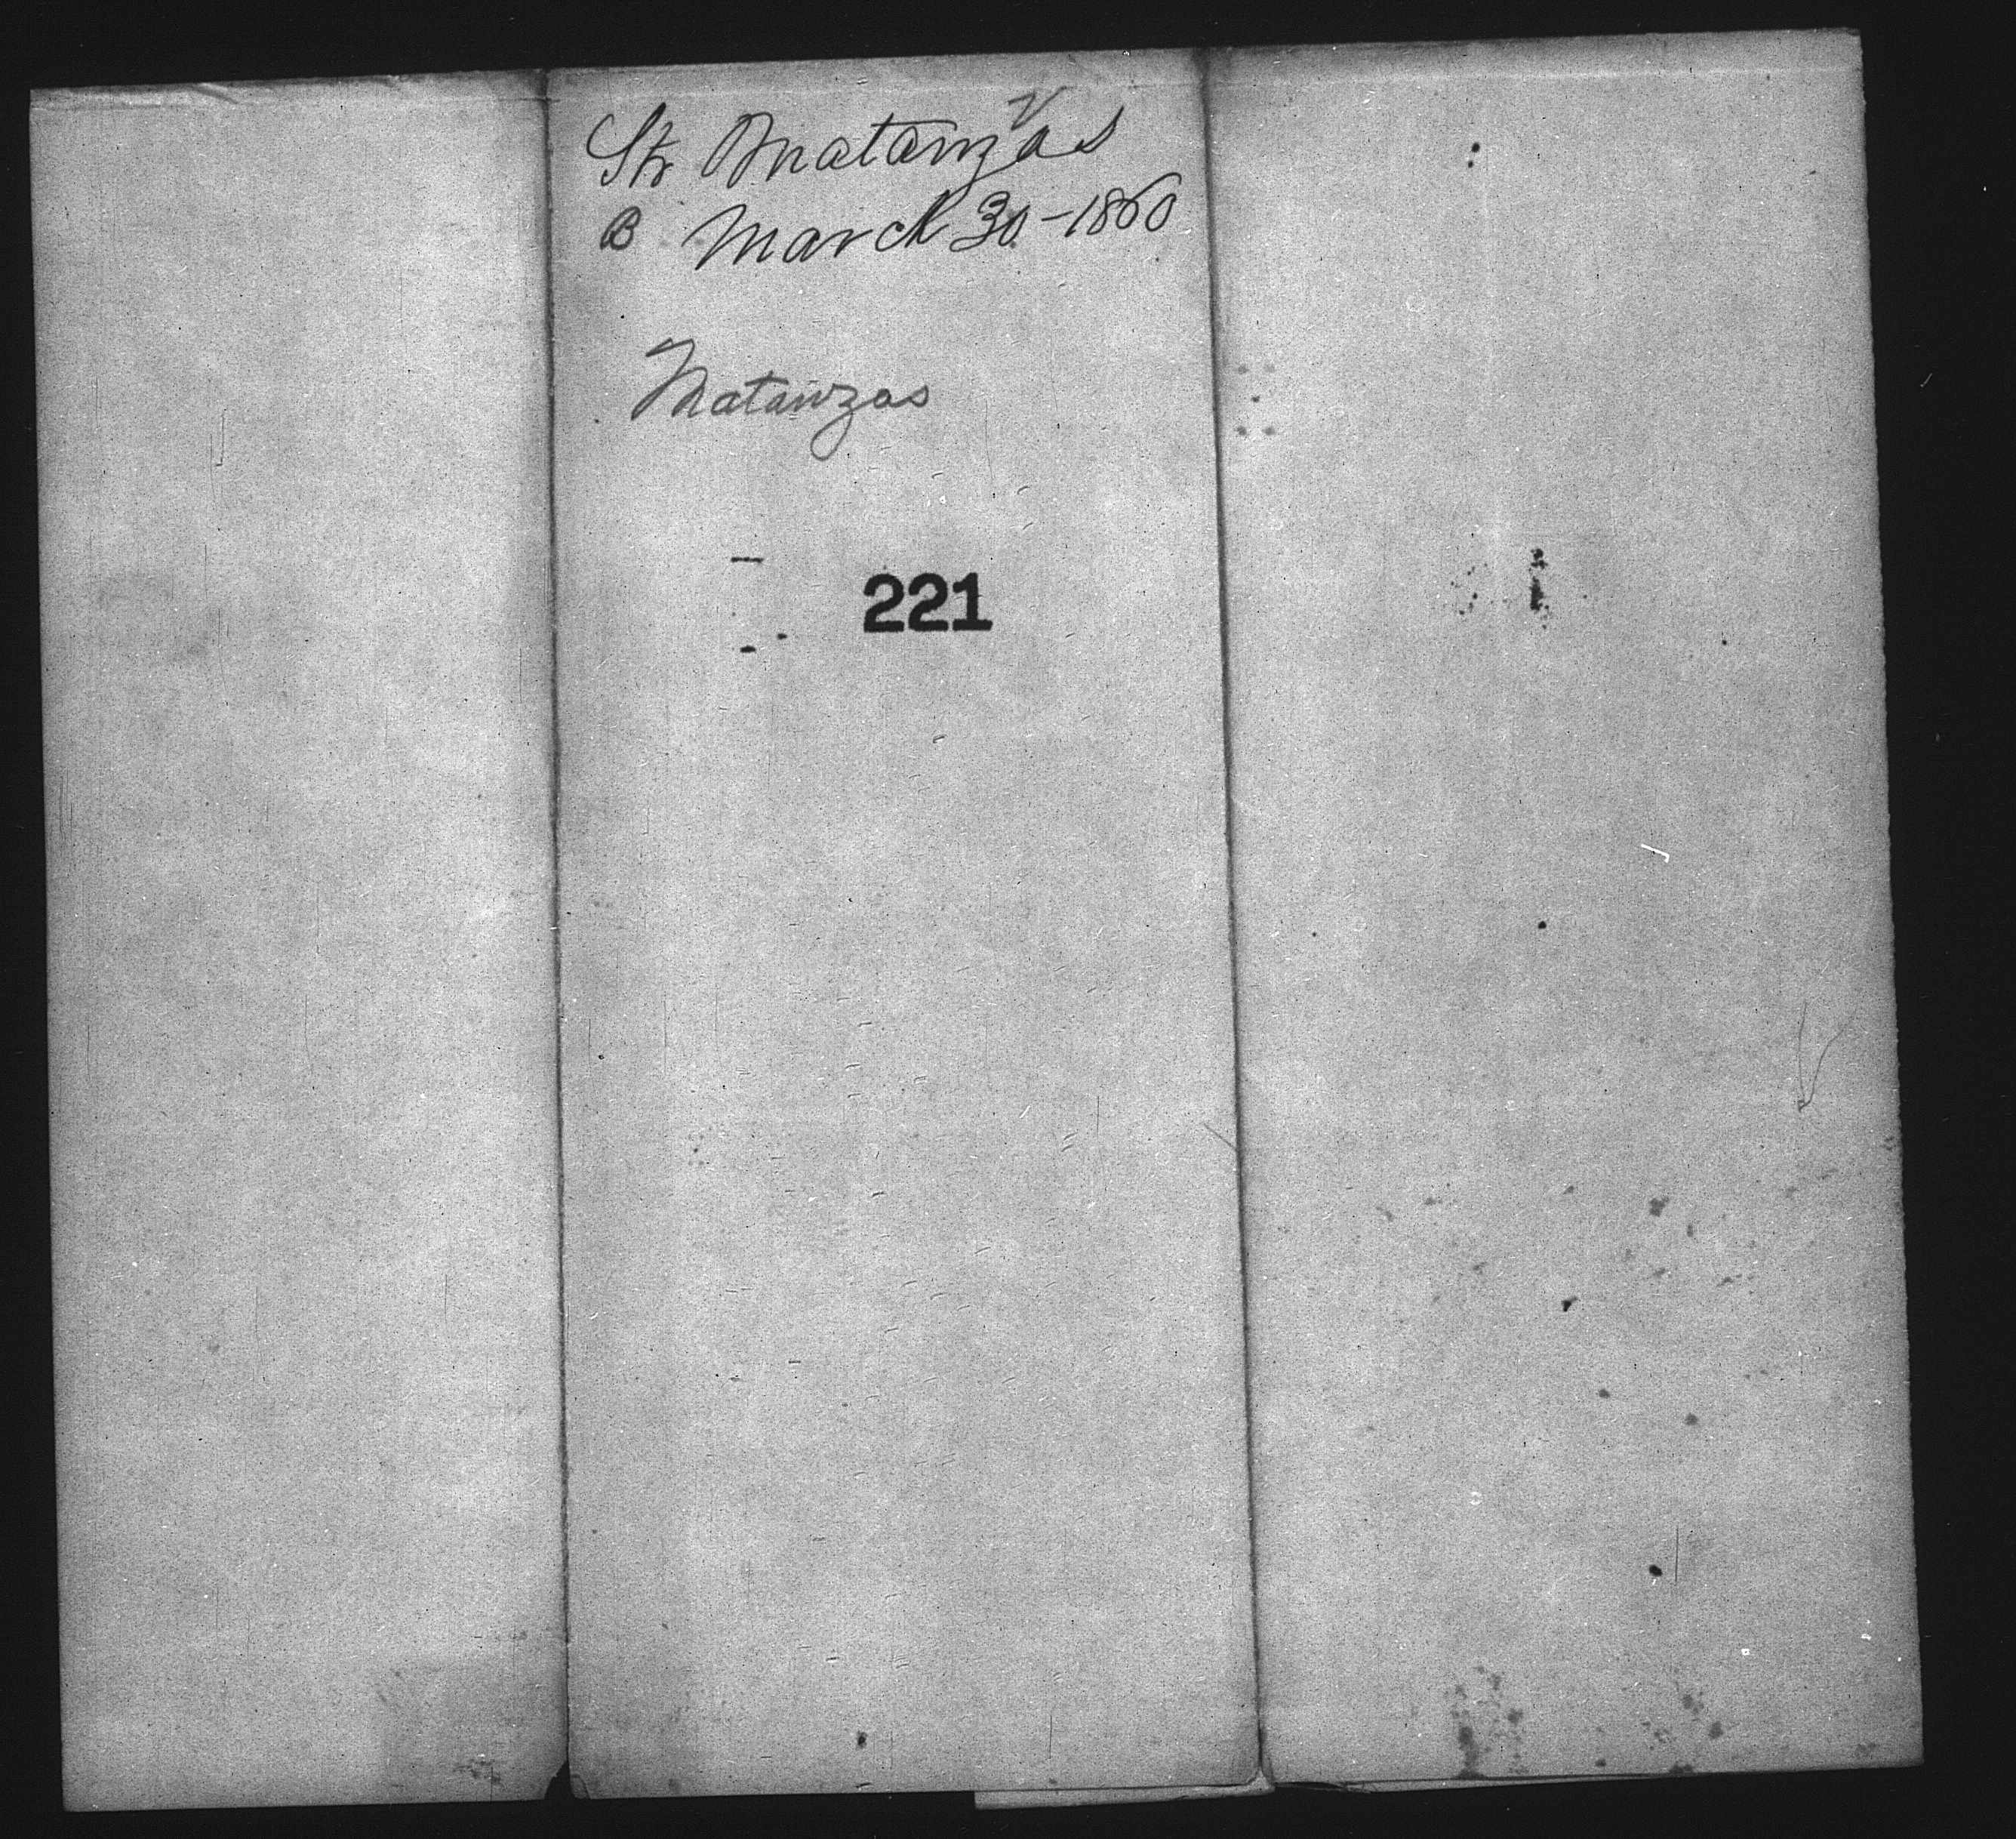 Str Matanzas
B March 30-1860
Matanzas
221